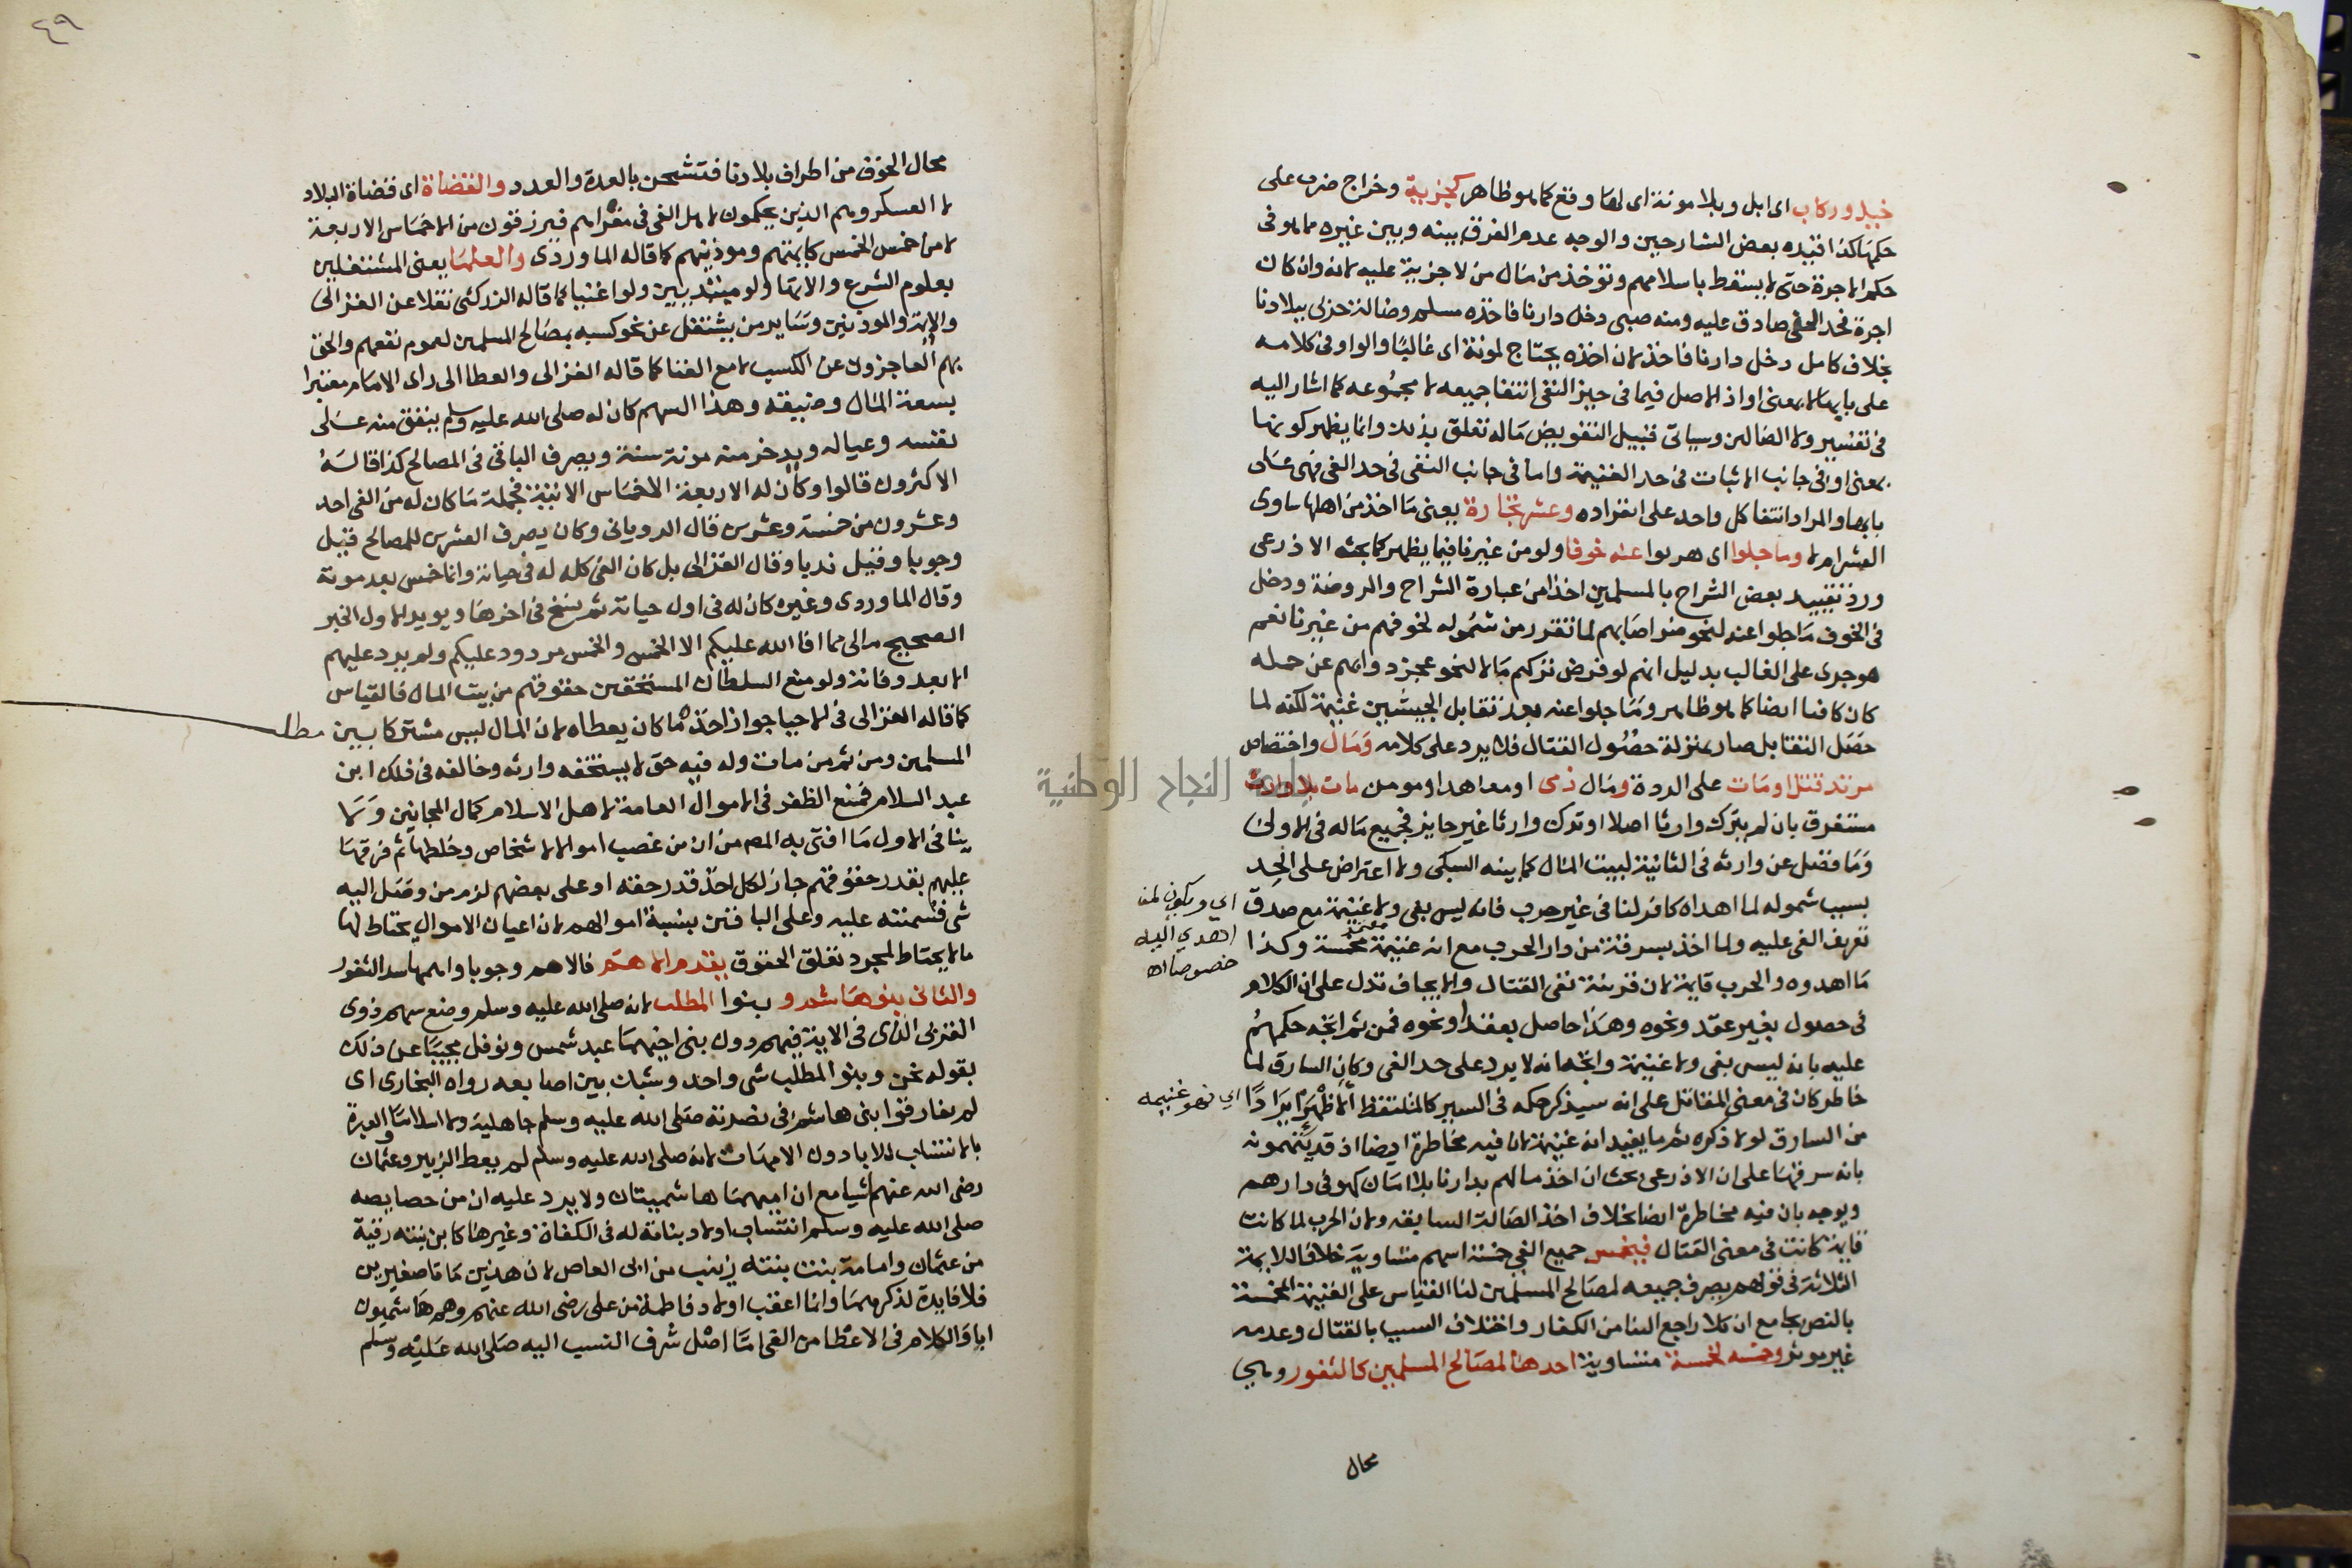 خيل وركاب اى ابل وبلا مونة اى لها وقع كما هو ظاهر كجزية وخراج ضرب على
حكمها كذا قيده بعض الشارحين والوجه عدم الفرق بينه وبين غيره مما هو فى
حكم الاجرة حتى لا يسقط باسلامهم وتوخذ من مال من لا جزية عليه لانه وان كان
اجرة فحد الفى صادق عليه ومنه صبى دخل دارنا فاخذه مسلم وضالة حربى ببلادنا
بخلاف كامل دخل دارنا فاخذ لان اخذه يحتاج لمونة اى غالبا والواو فى كلامه
على بابها لا بمعنى او اذ الاصل فيما فى حيز النفى انتفا جميعه لا مجموعه كما اشار اليه
فى تفسير ولا الضالين وسياتى قبيل التفويض ماله تعلق بذلك وانما يظهر كونها
بمعنى او فى جانب الاثبات فى حد الغنيمة واما فى جانب النفى فى حد الفى فهى على
بابها والمراد انتفا كل واحد على انفراده وعشر تجارة يعنى ما اخذ من اهلها ساوى
العشر ام لا وما جلوا اى هربوا عنه خوفا ولو من غيرنا فيما يظهر كما بحثه الاذرعى
ورد تقييد بعض الشراح بالمسلمين اخذا من عبارة الشراح والروضة ودخل
فى الخوف ما جلوا عنه لنحو ضر اصابهم لما تقرر من شموله لخوفهم من غيرنا نعم
هو جرى على الغالب بدليل انهم لو فرض تركهم مالا لنحو عجز دوابهم عن حمله
كان كافيا ايضا كما هو ظاهر وما جلوا عنه بعد تقابل الجيشين غنيمة لكنه لما
حصل التقابل صار بمنزلة حصول القتال فلا يرد على كلامه ومال واختصاص
مرتد قتل او مات على الردة ومال ذمى او معاهد او مومن مات بلا وارث
مستغرق بان لم يترك وارثا اصلا او ترك وارثا غير حايز فجميع ماله فى الاولى
وما فضل عن وارثه فى الثانية لبيت المال كما بينه السبكى ولا اعتراض على الحد
بسبب شموله لما اهداه كافر لنا فى غير حرب فانه ليس بفى ولا غنيمة مع صدق
اي ويكون لمن
اهدي اليه
خصوصا اه
تعريف الفى عليه ولما اخذ بسرقة من دار الحرب مع انه غنيمة مخمسة وكذا
ما اهدوه والحرب قايمة لان قرينة نفى القتال والايجاف تدل على ان الكلام
فى حصول بغير عقد ونحوه وهذا حاصل بعقد او نحوه فمن ثم اتجه حكمهم
عليه بانه ليس بفى ولا غنيمة واتجه انه لا يرد على حد الفى وكان السارق لما
خاطر كان فى معنى المقاتل على انه سيذكر حكمه فى السير كالملتقط الاظهر ايرادا
اي فهو غنيمه
من السارق لولا ذكره ثم ما يفيد انه غنيمة لان فيه مخاطرة ايضا اذ قد يتهمونه
بانه سرقها على ان الاذرعى بحث ان اخذ مالهم بدارنا بلا امان كهو فى دارهم
ويوجه بان فيه مخاطرة ايضا بخلاف اخذ الضالة السابقه ولان الحرب لما كانت
قايمة كانت فى معنى القتال فيخمس جميع الفي خمسة اسهم متساوية خلافا للايمة
الثلاثة فى قولهم يصرف جميعه لمصالح المسلمين لنا القياس على الغنيمة المخمسة
بالنص بجامع ان كلا راجع الينا من الكفار واختلاف السبب بالقتال وعدمه
غير موثر وخمسه لخمسة متساوية احدها لمصالح المسلمين كالثغور وهي
محال
٤٩
محال الخوف من اطراف بلادنا فتشحن بالعدة والعدد والقضاة اى قضاة البلاد
لا العسكر وهم الذين يحكمون لاهل الفى فى مغزاهم فيرزقون من الاخماس الاربعة
لا من خمس الخمس كايمتهم وموذنيهم كما قاله الماوردى والعلما يعنى المشتغلين
بعلوم الشرع والاتها ولو مبتديين ولو اغنيا كما قاله الزركشى نقلا عن الغزالى
والايمة والموذنين وساير من يشتغل عن نحو كسبه بمصالح المسلمين لعموم نفعهم والحق
بهم العاجزون عن الكسب لا مع الغنا كما قاله الغزالى والعطا الى راى الامام معتبرا
بسعة المال وضيقه وهذا السهم كان له صلى الله عليه وسلم ينفق منه على
نفسه وعياله ويدخر منه مونة سنة ويصرف الباقى فى المصالح كذا قاله
الاكثرون قالوا وكان له الاربعة الاخماس الاتية فجملة ما كان له من الفى احد
وعشرون من خمسة وعشرين قال الرويانى وكان يصرف العشرين للمصالح قيل
وجوبا وقيل ندبا وقال الغزالى بل كان الفى كله له فى حياته وانما خمس بعد موته
وقال الماوردى وغيره كان له فى اول حياته ثم نسخ فى اخرها ويويد الاول الخبر
الصحيح مالى مما افا الله عليكم الا الخمس والخمس مردود عليكم ولم يرد عليهم
الا بعد وفاته ولو منع السلطان المستحقين حقوقهم من بيت المال فالقياس
كما قاله الغزالى فى الاحيا جواز اخذه ما كان يعطاه لان المال ليس مشتركا بين
مطلب
المسلمين ومن ثم من مات وله فيه حق لا يستحقه وارثه وخالفه فى ذلك ابن
عبد السلام فمنع الظفر فى الاموال العامة لاهل الاسلام كمال المجانين ولا
ينافى الاول ما افتى به المص من ان من غصب اموالا لاشخاص وخلطها ثم فرقها
عليهم بقدر حقوقهم جاز لكل اخذ قدر حقه او على بعضهم لزم من وصل اليه
شى قسمته عليه وعلى الباقين بنسبة اموالهم لان اعيان الاموال يحتاط لها
ما لا يحتاط لمجرد تعلق الحقوق يقدم الاهم فالاهم وجوبا واهمها سد الثغور
والثانى بنو هاشم و بنوا المطلب لانه صلى الله عليه وسلم وضع سهم ذوى
القربى الذى فى الاية فيهم دون بنى اخيهما عبد شمس ونوفل مجيبا عن ذلك
بقوله نحن وبنو المطلب شى واحد وشبك بين اصابعه رواه البخارى اى
لم يفارقوا بنى هاشم فى نصرته صلى الله عليه وسلم جاهلية ولا اسلاما والعبرة
بالانتساب للابا دون الامهات لانه صلى الله عليه وسلم لم يعط الزبير وعثمان
رضى الله عنهم شيا مع ان اميهما هاشميتان ولا يرد عليه ان من خصايصه
صلى الله عليه وسلم انتساب اولاد بناته له فى الكفاة وغيرها كابن بنته رقية
من عثمان وامامة بنت بنته زينب من ابى العاص لان هذين ماتا صغيرين
فلا فايدة لذكرهما وانما اعقب اولاد فاطمة من على رضى الله عنهم وهم هاشميون
ابا والكلام فى الاعطا من الفى اما اصل شرف النسب اليه صلى الله عليه وسلم
جامعة النجاح الوطنية